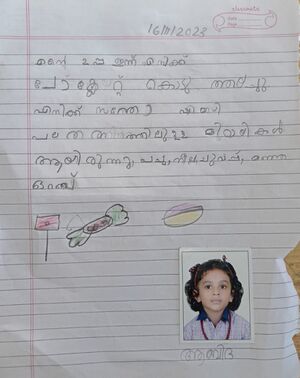 classmate
Date
Page
16/11/2023
എന്റെ ഉപ്പ ഇന്ന് എനിക്ക്
ചോക്ലേറ്റ് കൊടു തയച്ചു
എനിക്ക് സന്തോ ഷമായി
പല തരത്തിലുള്ള മിഠായികൾ
ആയി രുന്നു, പച്ച, നീല, ചുവപ്പ്, മഞ്ഞ
ഓറഞ്ച്
ആബിദ